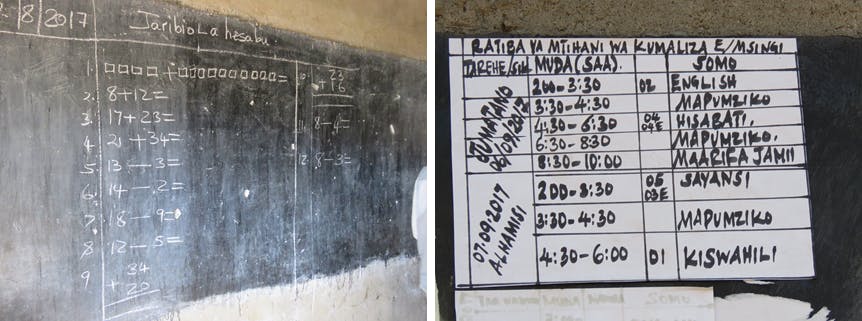 8/2017
Jaribio La hesabu
1. □□□□ + □□□□□□□□□□ =
2. 8+12=
3. 17+23=
4. 21 + 34=
5. 13 - 3=
6. 14 - 2=
7. 18 - 9=
8. 12 - 5=
9 34
+ 20
23
+ 16
8-4=
12. 8-3=
RATIBA YA MTIHANI WA KUMALIZA E/MSINGI
TAREHE/SIKU MUDA (SAA). SOMO
JUMATANO 06/09/2017
200-3:30 02 ENGLISH
3:30-4:30 MAPUMZIKO
4:30-6:30 04 04E HISABATI,
6:30-8:30 MAPUMZIKO.
8:30-10:00 MAARIFA JAMII
07-09-2017 ALHAMISI
200-3:30 05 03E SAYANSI
3:30-4:30 MAPUMZIKO
4:30-6:00 01 KISWAHILI
SOMO